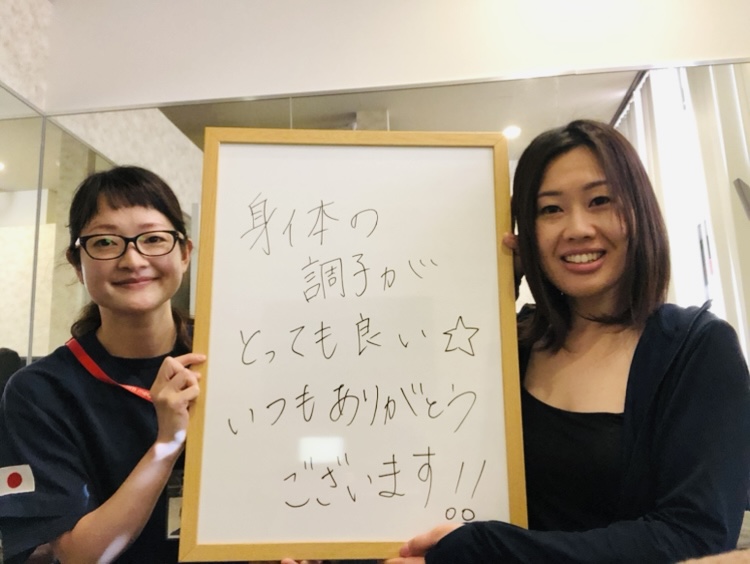 身体の
調子が
とっても良い☆
いつもありがとう
ございます!!